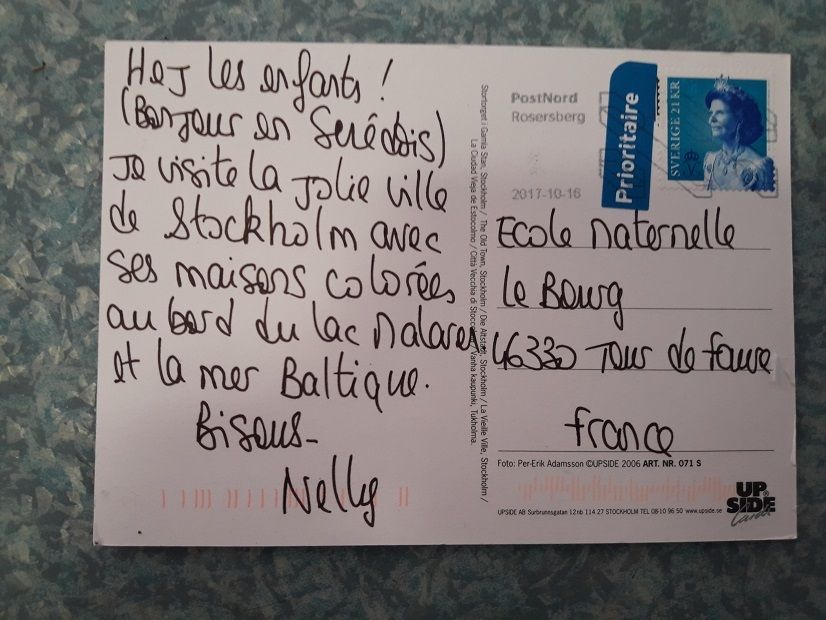 Hej les enfants !
(Bonjour en Suédois)
Je visite la jolie ville
de Stockholm avec
ses maisons colorées
au bord du lac Malaren
et la mer Baltique.
Bisous-
Nelly
Stortorget i Gamla Stan, Stockholm / The Old Town, Stockholm / Die Altstadt, Stockholm / La Vieille Ville, Stockholm /
La Ciudad Vieja de Estocolmo / Città Vecchia di Stoccolma / Vanha kaupunki, Tukholma.
PostNord
Rosersberg
2017-10-16
Prioritaire
SVERIGE 21 KR
Ecole Maternelle
le Bourg
46330 Tour de faure
france
Foto: Per-Erik Adamsson ©UPSIDE 2006 ART. NR. 071 S
UPSIDE AB Surbrunnsgatan 12nb 114 27 STOCKHOLM TEL 08-10 96 50 www.upside.se
UP
SIDE
Cards